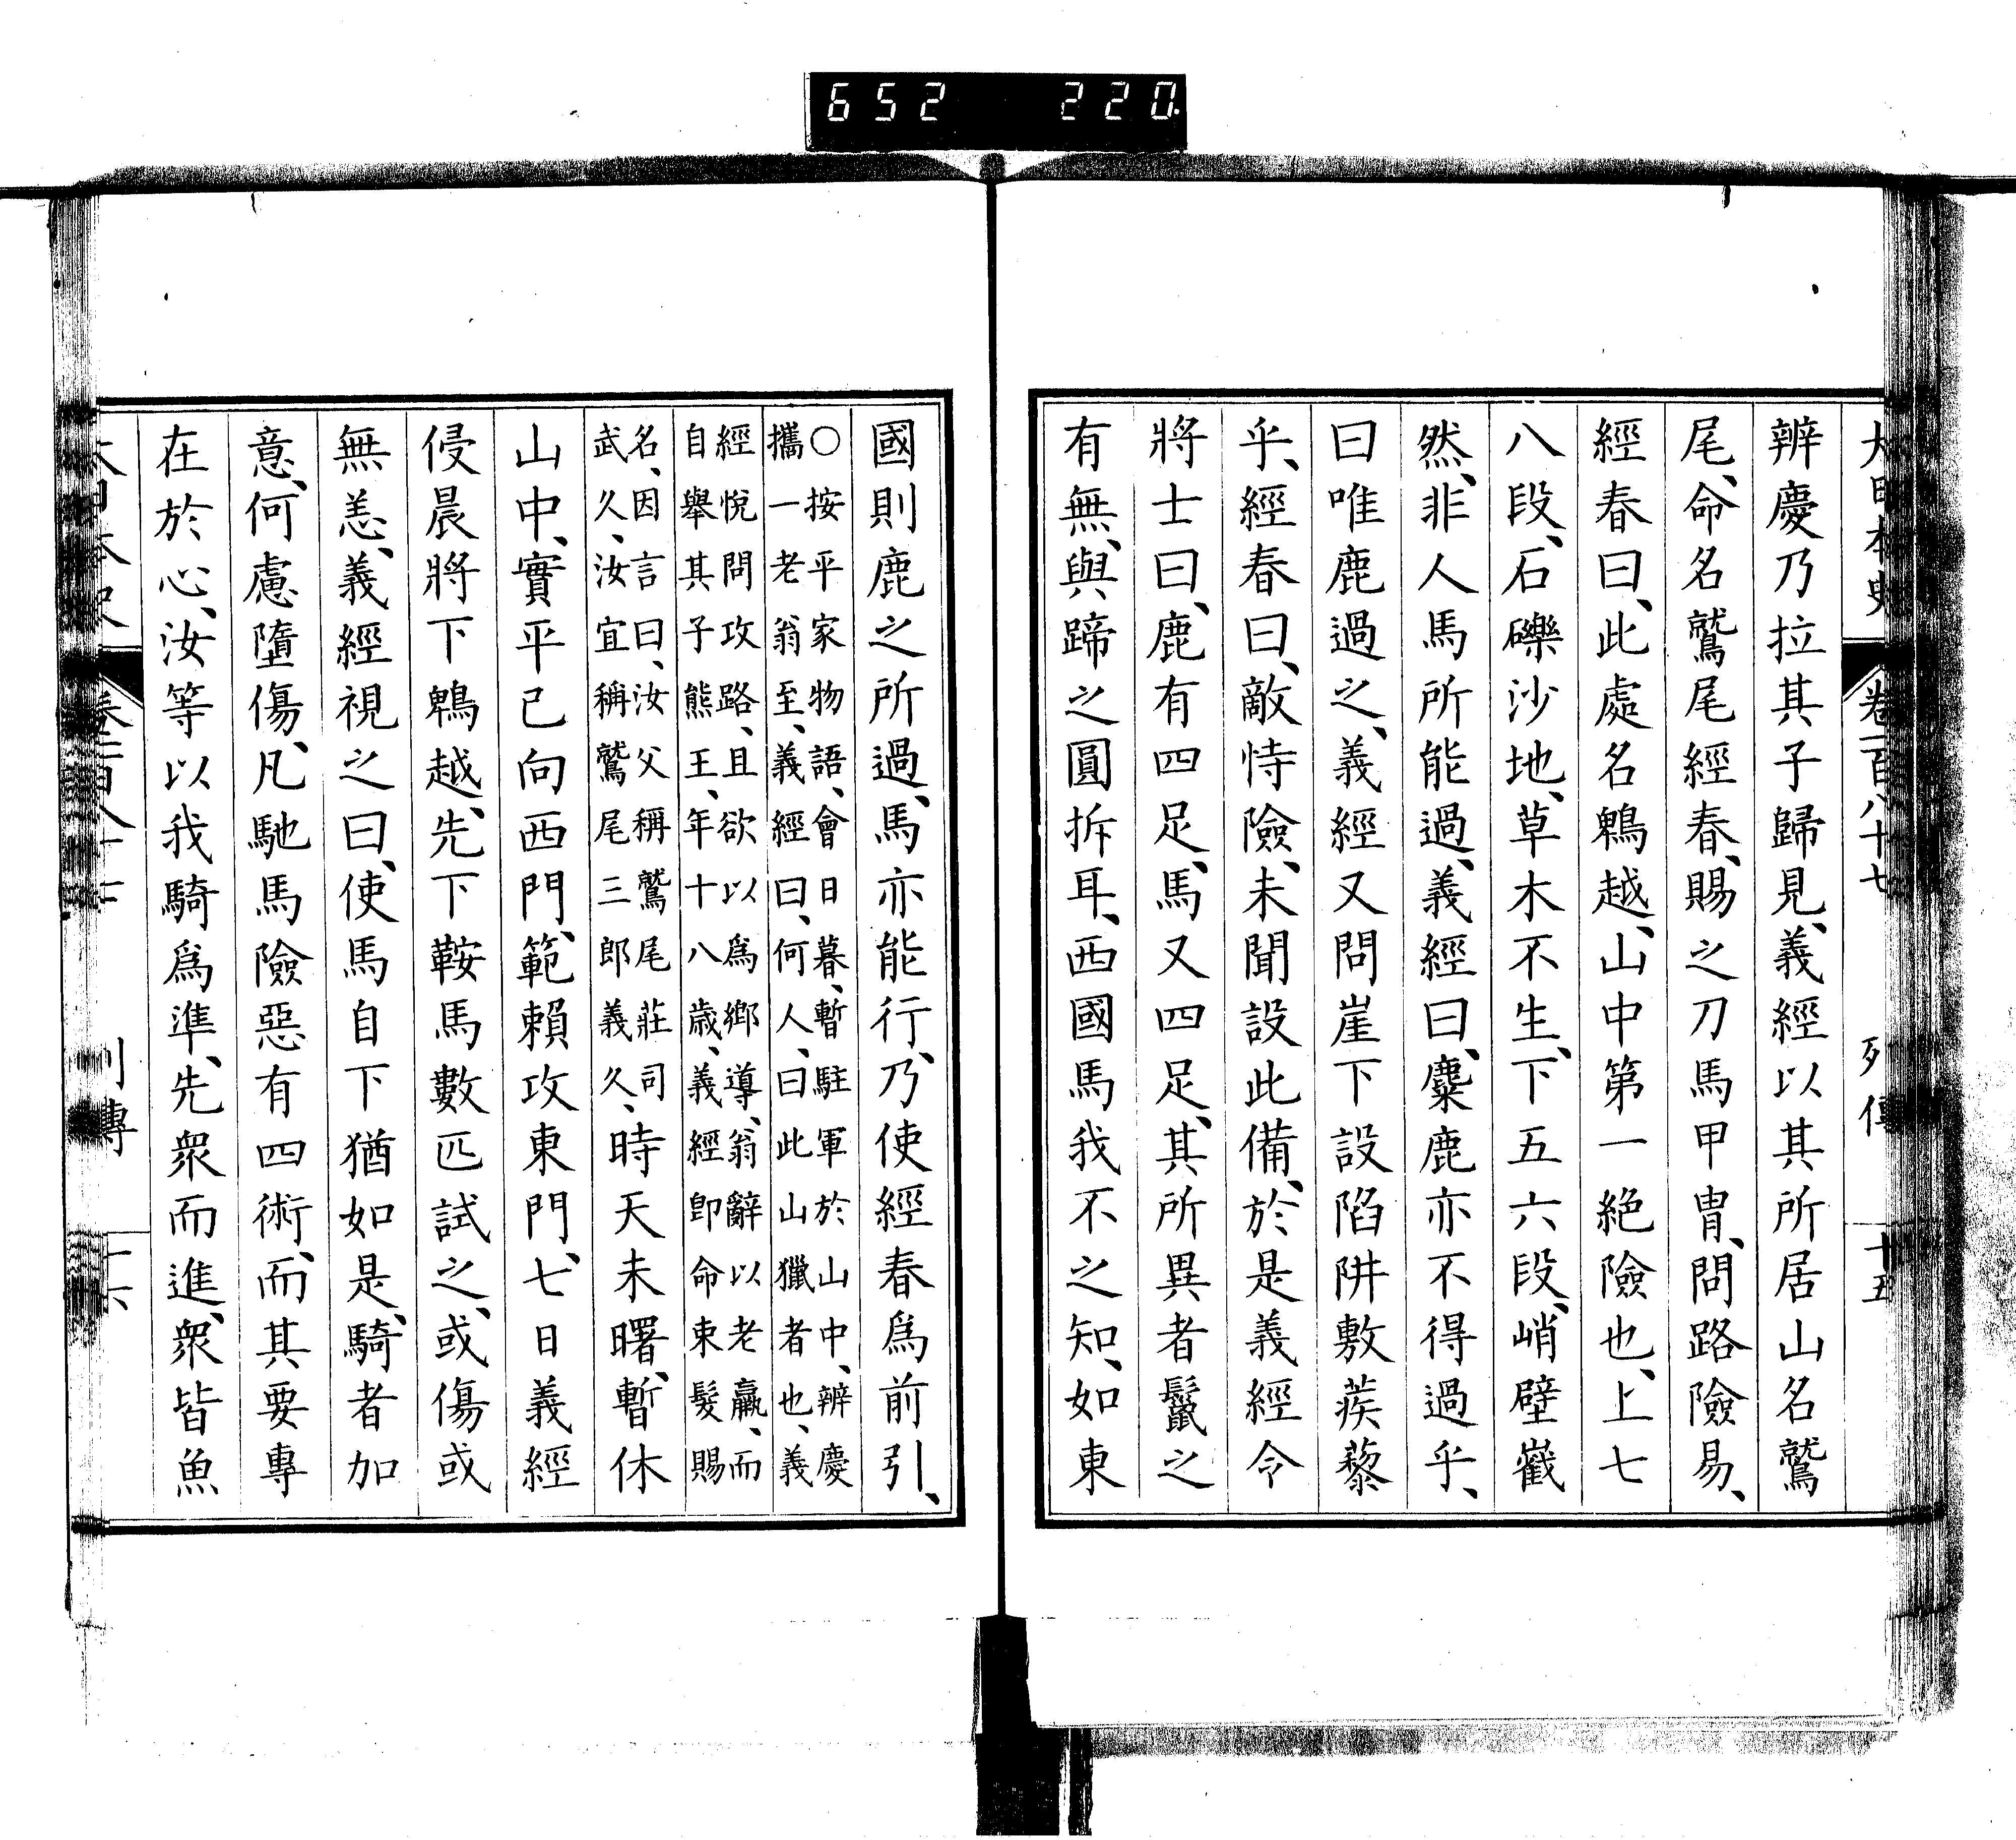 652 220
大日本史 卷一百八十七 列傳 十五
辨慶乃拉其子歸見、義經以其所居山名鷲
尾、命名鷲尾經春、賜之刀馬甲冑、問路險易、
經春曰、此處名鵯越、山中第一絶險也、上七
八段、石礫沙地、草木不生、下五六段、峭壁巉
然、非人馬所能過、義經曰、麋鹿亦不得過乎、
曰唯鹿過之、義經又問崖下設陷阱敷蒺藜
乎、經春曰、敵恃險、未聞設此備、於是義經令
將士曰、鹿有四足、馬又四足、其所異者鬣之
有無、與蹄之圓拆耳、西國馬我不之知、如東
國則鹿之所過、馬亦能行、乃使經春爲前引、
○按平家物語、會日暮、暫駐軍於山中、辨慶
攜一老翁至、義經曰、何人、曰此山獵者也、義
經悅問攻路、且欲以爲鄉導、翁辭以老羸、而
自舉其子熊王、年十八歳、義經卽命束髮賜
名、因言曰、汝父稱鷲尾莊司
武久、汝宜稱鷲尾三郎義久、時天未曙、暫休
山中、實平已向西門、範賴攻東門、七日義經
侵晨將下鵯越、先下鞍馬數匹試之、或傷或
無恙、義經視之曰、使馬自下猶如是、騎者加
意、何慮墮傷、凡馳馬險惡有四術、而其要專
在於心、汝等以我騎爲準、先衆而進、衆皆魚
大日本史 卷一百八十七 列傳 十六